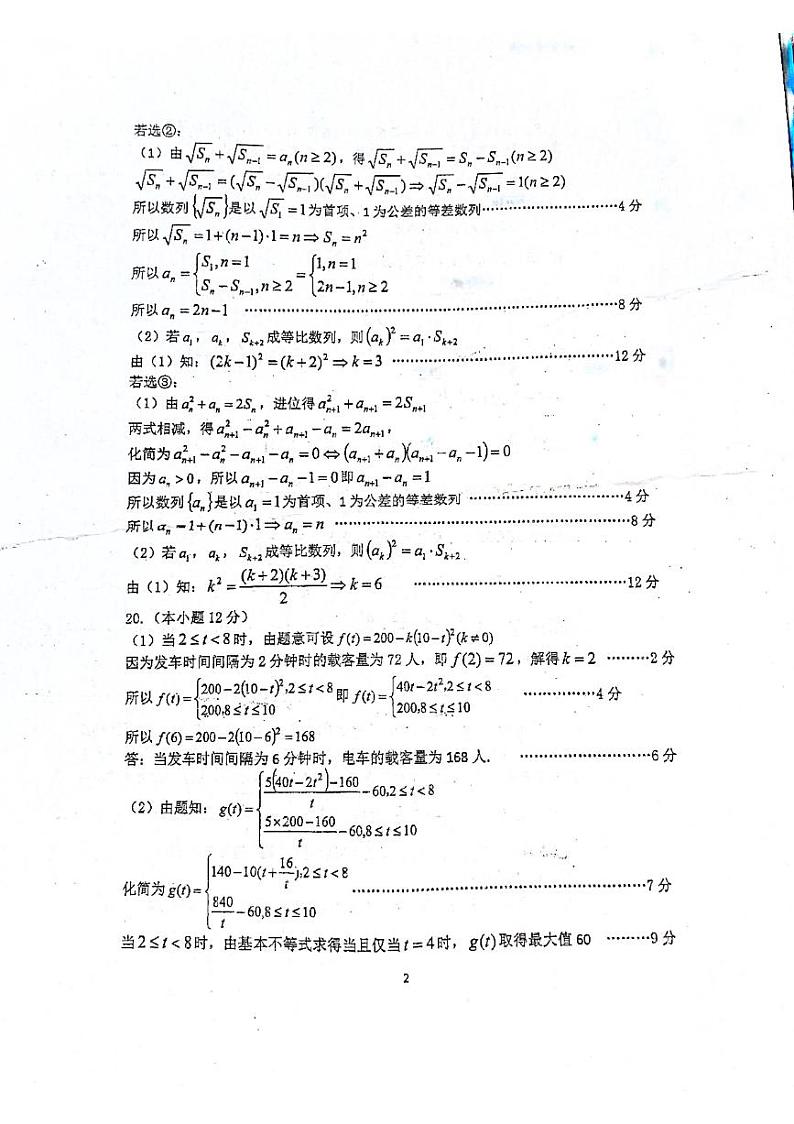 若选②：
（1）由√Sₙ+√Sₙ₋₁=aₙ(n≥2)，得√Sₙ+√Sₙ₋₁=Sₙ−Sₙ₋₁(n≥2)
√Sₙ+√Sₙ₋₁=(√Sₙ−√Sₙ₋₁)(√Sₙ+√Sₙ₋₁)⇒√Sₙ−√Sₙ₋₁=1(n≥2)
所以数列{√Sₙ}是以√S₁=1为首项、1为公差的等差数列……………………………4分
所以√Sₙ=1+(n−1)·1=n⇒Sₙ=n²
所以aₙ={S₁,n=1; Sₙ−Sₙ₋₁,n≥2}={1,n=1; 2n−1,n≥2}
所以aₙ=2n−1 ……………………………8分
（2）若a₁，aₖ，Sₖ₊₂成等比数列，则(aₖ)²=a₁·Sₖ₊₂
由（1）知：(2k−1)²=(k+2)²⇒k=3 ……………………………12分
若选③：
（1）由aₙ²+aₙ=2Sₙ，进位得aₙ₊₁²+aₙ₊₁=2Sₙ₊₁
两式相减，得aₙ₊₁²−aₙ²+aₙ₊₁−aₙ=2aₙ₊₁，
化简为aₙ₊₁²−aₙ²−aₙ₊₁−aₙ=0⇔(aₙ₊₁+aₙ)(aₙ₊₁−aₙ−1)=0
因为aₙ>0，所以aₙ₊₁−aₙ−1=0即aₙ₊₁−aₙ=1
所以数列{aₙ}是以a₁=1为首项、1为公差的等差数列 ……………………………4分
所以aₙ=1+(n−1)·1⇒aₙ=n ……………………………8分
（2）若a₁，aₖ，Sₖ₊₂成等比数列，则(aₖ)²=a₁·Sₖ₊₂
由（1）知：k²=(k+2)(k+3)/2⇒k=6 ……………………………12分
20.（本小题12分）
（1）当2≤t<8时，由题意可设f(t)=200−k(10−t)²(k≠0)
因为发车时间间隔为2分钟时的载客量为72人，即f(2)=72，解得k=2 ………2分
所以f(t)={200−2(10−t)²,2≤t<8; 200,8≤t≤10}即f(t)={40t−2t²,2≤t<8; 200,8≤t≤10} ……………4分
所以f(6)=200−2(10−6)²=168
答：当发车时间间隔为6分钟时，电车的载客量为168人. ……………………6分
（2）由题知：g(t)={(5(40t−2t²)−160)/t−60,2≤t<8; (5×200−160)/t−60,8≤t≤10}
化简为g(t)={140−10(t+16/t),2≤t<8; 840/t−60,8≤t≤10} ……………………………7分
当2≤t<8时，由基本不等式求得当且仅当t=4时，g(t)取得最大值60 ………9分
2